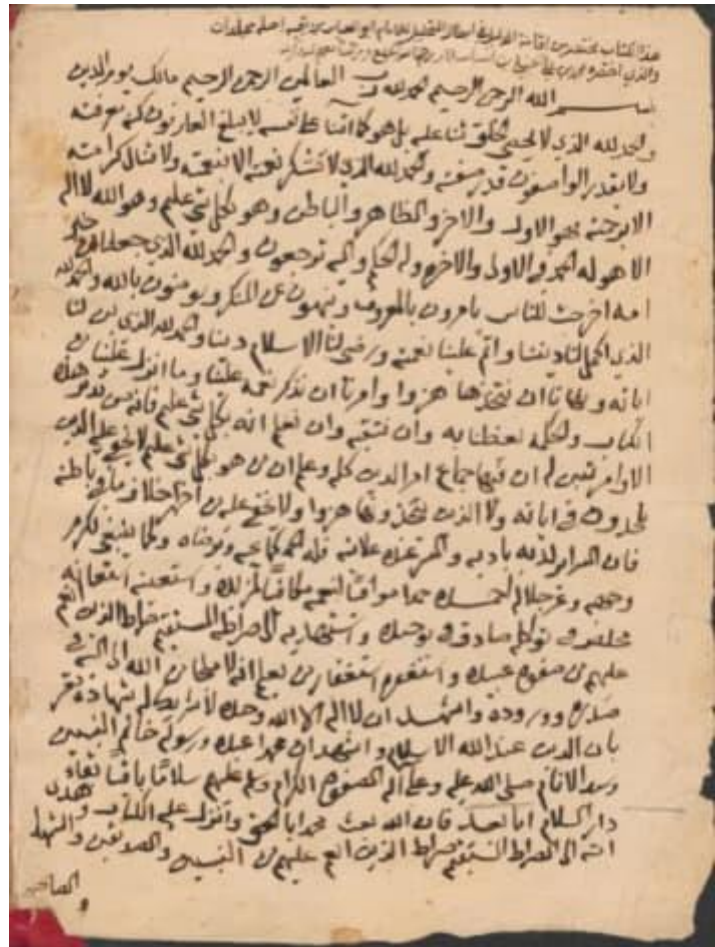 هذا الكتاب مختصر من اقامة الدليل على ابطال التحليل للامام ابي العباس بن تيمية اصله مجلدات
والذي اختصره محمد بن علي
بسم الله الرحمن الرحيم الحمد لله رب العالمين الرحمن الرحيم مالك يوم الدين
والحمد لله الذي لا يحصي الخلق ثنا عليه بل هو كما اثنا على نفسه لا يبلغ العارفون كنه معرفته
ولا يقدر الواصفون قدر صفته والحمد لله الذي لا تشكر نعمته الا بنعمته ولا تنال كرامته
الا برحمته هو الاول والاخر والظاهر والباطن وهو بكل شي عليم وهو الله لا اله
الا هو له الحمد في الاولى والاخره وله الحكم واليه ترجعون والحمد لله الذي جعلنا من خير
امة اخرجت للناس يامرون بالمعروف وينهون عن المنكر ويومنون بالله والحمد لله
الذي اكمل لنا ديننا واتم علينا نعمته ورضي لنا الاسلام دينا والحمد لله الذي بين لنا
اياته ونهانا ان نتخذها هزوا وامرنا ان نذكر نعمه علينا وما انزل علينا من
الكتاب والحكمة يعظنا به وان نتقيه وان نعلم انه بكل شي عليم فانه من تدبر هذه
الاوامر تبين له ان فيها جماع امر الدين كله وعلم ان من هو بكل شي عليم لا يخفى عليه الذين
يلحدون في اياته ولا الذين يتخذونها هزوا ولا يخفى عليه من اظهر خلاف ما في باطنه
فان السراير لديه باديه والسر عنده علانيه فله الحمد كما يحبه ويرضاه وكما ينبغي لكرم
وجهه وعز جلاله احمده حمدا موافيا لنعمه مكافيا لمزيده واستعينه استعانة
مخلص في توكله صادق في توحيده واستهديه الى صراطه المستقيم صراط الذين انعم
عليهم من صفوة عبيده واستغفره استغفار من يعلم انه لا ملجا من الله الا اليه في
صدوره ووروده واشهد ان لا اله الا الله وحده لا شريك له شهادة مقر
بان الدين عند الله الاسلام واشهد ان محمدا عبده ورسوله خاتم النبيين
وسيد الانام صلى الله عليه وعلى اله الصفوة الكرام وسلم عليهم سلاما باقيا بقاء
دار السلام اما بعد فان الله بعث محمدا بالحق وانزل عليه الكتاب وهدى
امته الى الصراط المستقيم صراط الذين انعم عليهم من النبيين والصديقين والشهدا
والصالحين